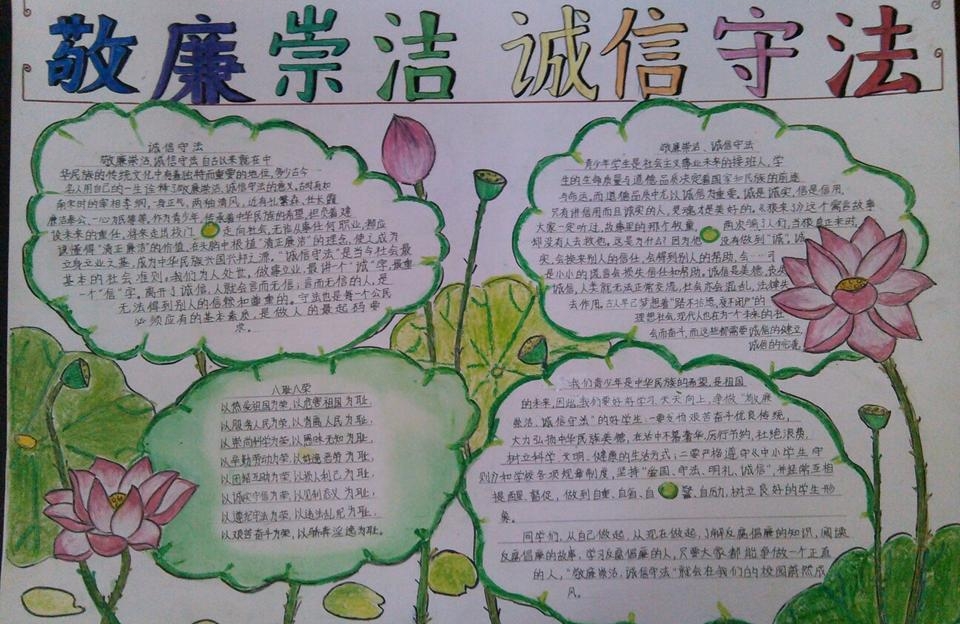 敬廉崇洁 诚信守法
诚信守法
敬廉崇洁、诚信守法自古以来就在中
华民族的传统文化中有着独特而重要的地位，多少古今
名人用自己的一生诠释了敬廉崇洁、诚信守法的意义。
南宋时的宰相李纲，一身正气，两袖清风，还有孔繁森、任长霞
廉洁奉公，一心为民
作为青少年，传承着中华民族的希望，担负着建
设未来的责任，将来走出校门，走向社会，无论从事任何职业，都应
该懂得“清正廉洁”的价值，在头脑中根植“清正廉洁”的理念，使之成为
立身立业之基，成为中华民族兴国兴邦之源。“诚信守法”是当今社会最
基本的社会准则。我们为人处世，做事立业，最讲一个“诚”字，最重
一个“信”字。离开了诚信，人就会言而无信；言而无信的人，是
无法得到别人的信赖和尊重的。守法也是每一个公民
必须应有的基本素质，是做人的最起码要
求。
敬廉崇洁、诚信守法
青少年学生是社会主义事业未来的接班人，学
生的生命质量与道德品质决定着国家和民族的前途
与命运，而道德品质中尤以诚信为重要。诚是诚实，信是信用，
只有讲信用而且诚实的人，灵魂才是美好的。《狼来了》这个寓言故事
大家一定听过，故事里的那个牧童，两次骗了人们，当狼真正来时，
却没有人去救他。这是为什么？因为他没有做到“诚”，诚
实，会换来别人的信任，会得到别人的帮助，
是小小的谎言会损失信任和帮助。诚信是美德，
诚信，人类就无法正常交流，社会亦会混乱，法律失
去作用。古人早已梦想着“路不拾遗，夜不闭户”的
理想社会，现代人也在为一个未来的社
会而奋斗，而这些都需要诚信的建立，
诚信的完善。
八耻八荣
以热爱祖国为荣，以危害祖国为耻，
以服务人民为荣，以背离人民为耻，
以崇尚科学为荣，以愚昧无知为耻，
以辛勤劳动为荣，以好逸恶劳为耻，
以团结互助为荣，以损人利己为耻，
以诚实守信为荣，以见利忘义为耻，
以遵纪守法为荣，以违法乱纪为耻，
以艰苦奋斗为荣，以骄奢淫逸为耻。
我们青少年是中华民族的希望，是祖国
的未来，因此我们要好好学习，天天向上，争做“敬廉
崇洁，诚信守法”的好学生：一要发扬艰苦奋斗优良传统，
大力弘扬中华民族美德，在生活中不慕奢华，厉行节约，杜绝浪费，
树立科学、文明、健康的生活方式；二要严格遵守《中小学生守
则》和学校各项规章制度，坚持“爱国、守法、明礼、诚信”，并经常互相
提醒、督促，做到自重、自省、自警、自励，树立良好的学生形
象。
同学们，从自己做起，从现在做起，了解反腐倡廉的知识，阅读
反腐倡廉的故事，学习反腐倡廉的人，只要大家都能争做一个正直
的人，“敬廉崇洁，诚信守法”就会在我们的校园蔚然成
风。